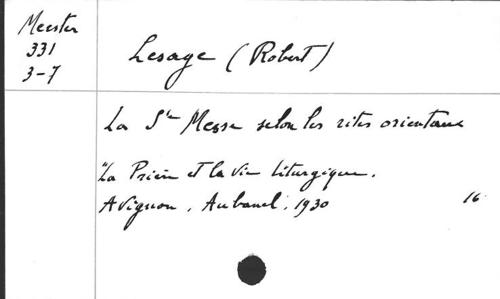 Meester
331
3-7
Lesage (Robert)
La Ste Messe selon les rites orientaux
"La Prière et la vie liturgique.
Avignon, Aubanel, 1930 16